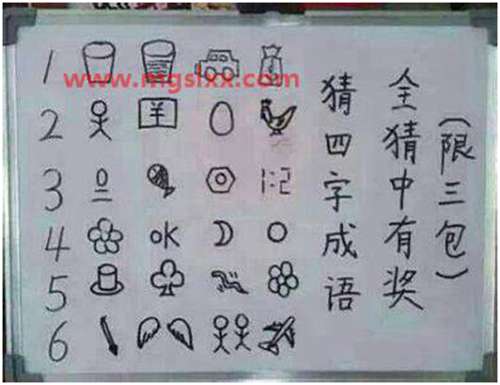 (限三包)
全猜中有奖
猜四字成语
1
www.mgslxx.com
2 羊
3 1:2
4 OK
5
6